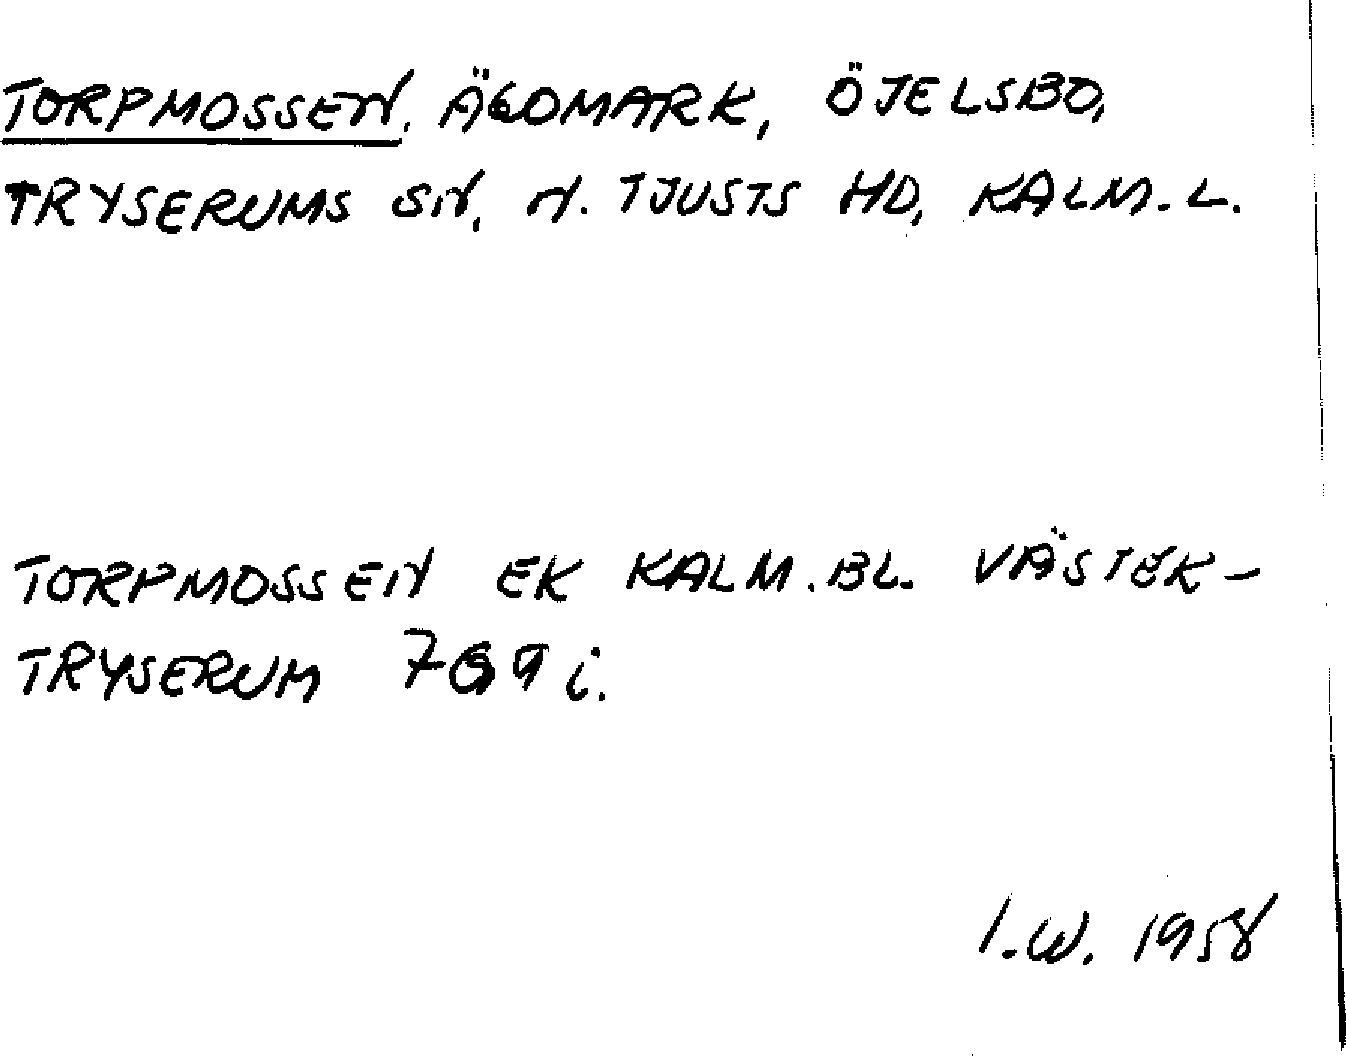 TORPMOSSEN, ÄGOMARK, ÖJELSBO,
TRYSERUMS SN, N. TJUSTS HD, KALM. L.
TORPMOSSEN EK KALM. BL. VÄSTEK-
TRYSERUM 769 i.
I.W. 1958